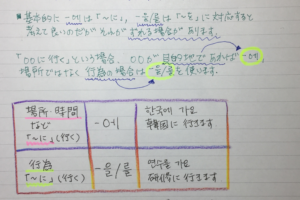 ※基本的に -에は「〜に」、-을/를 は「〜を」に対応すると
考えて良いのだが それがずれる場合があります。
「〇〇に行く」という場合、〇〇が 目的地であれば -에
場所だけはなく 行為の場合は -을/를を使います。
場所・時間 など 「〜に」(行く)
-에
한국에 가요
韓国に行きます。
行為 「〜に」(行く)
-을/를
연수를 가요
研修に行きます